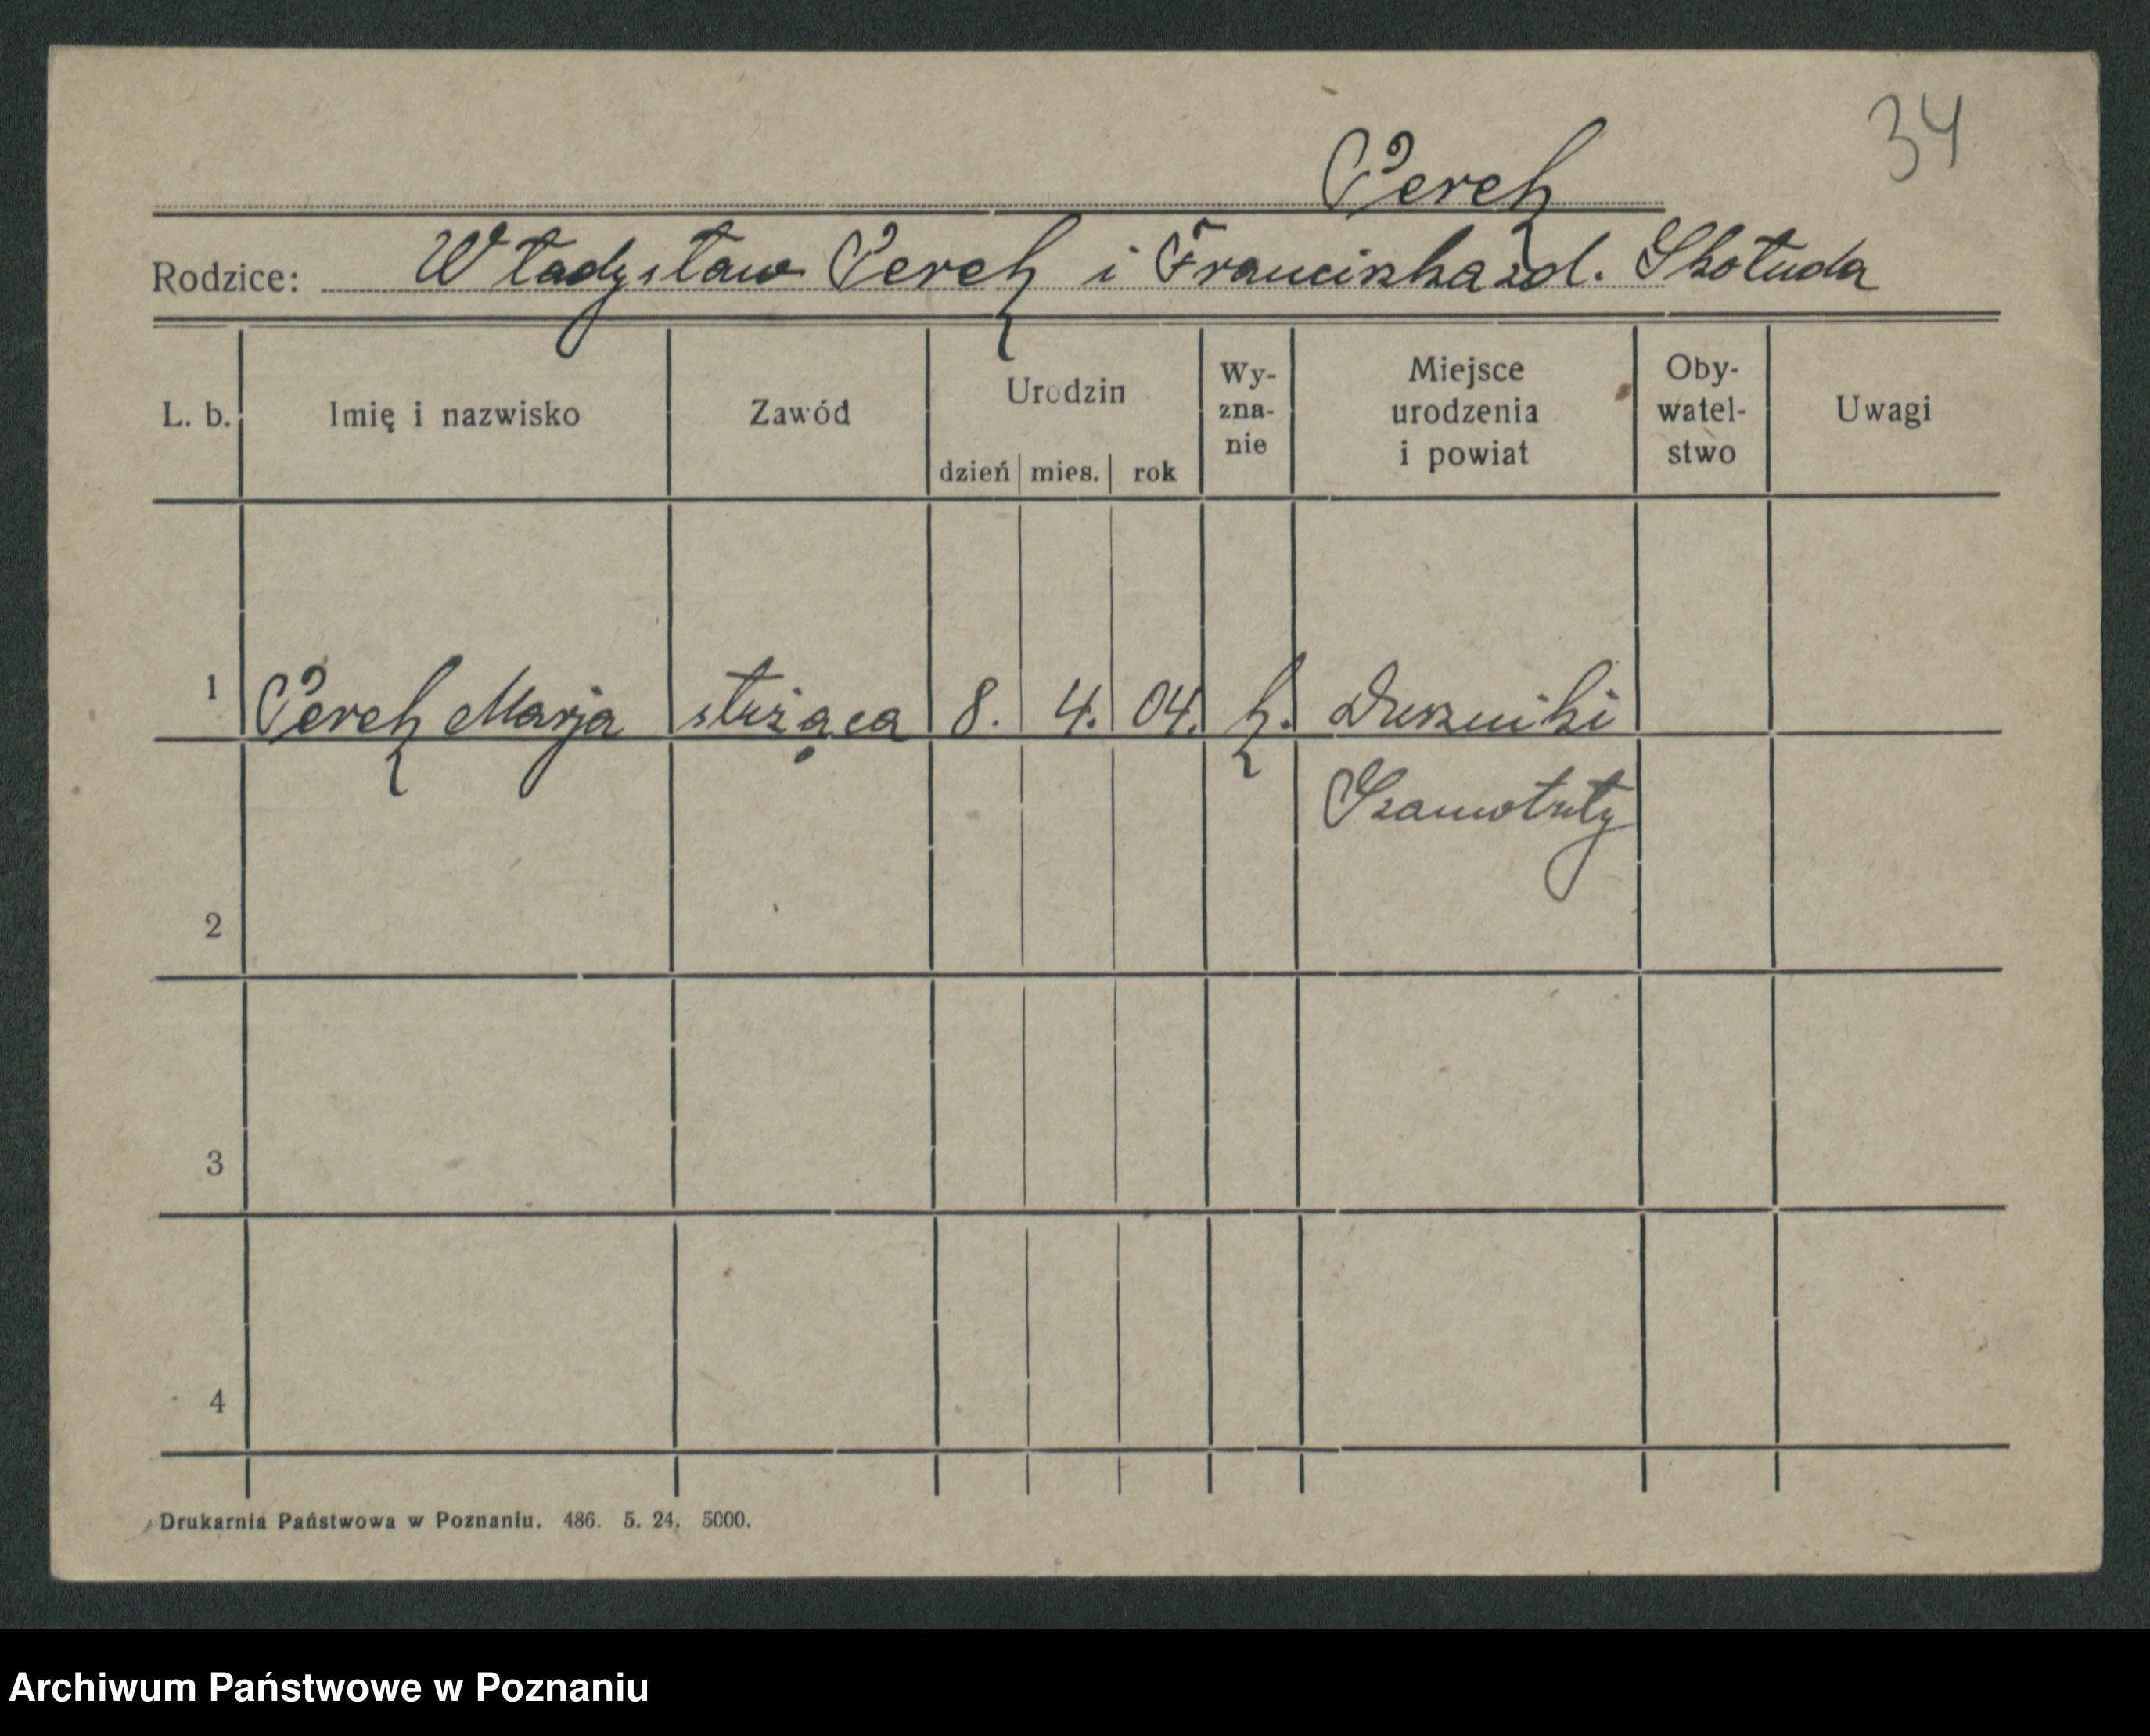 34
Perek
Rodzice: Władysław Perek i Franciszka zd. Skołuda
L. b. Imię i nazwisko Zawód Urodzin dzień mies. rok Wy-zna-nie Miejsce urodzenia i powiat Oby-watel-stwo Uwagi
1 Perek Marja służąca 8. 4. 04. k. Duszniki
Szamotuły
2
3
4
Drukarnia Państwowa w Poznaniu. 486. 5. 24. 5000.
Archiwum Państwowe w Poznaniu